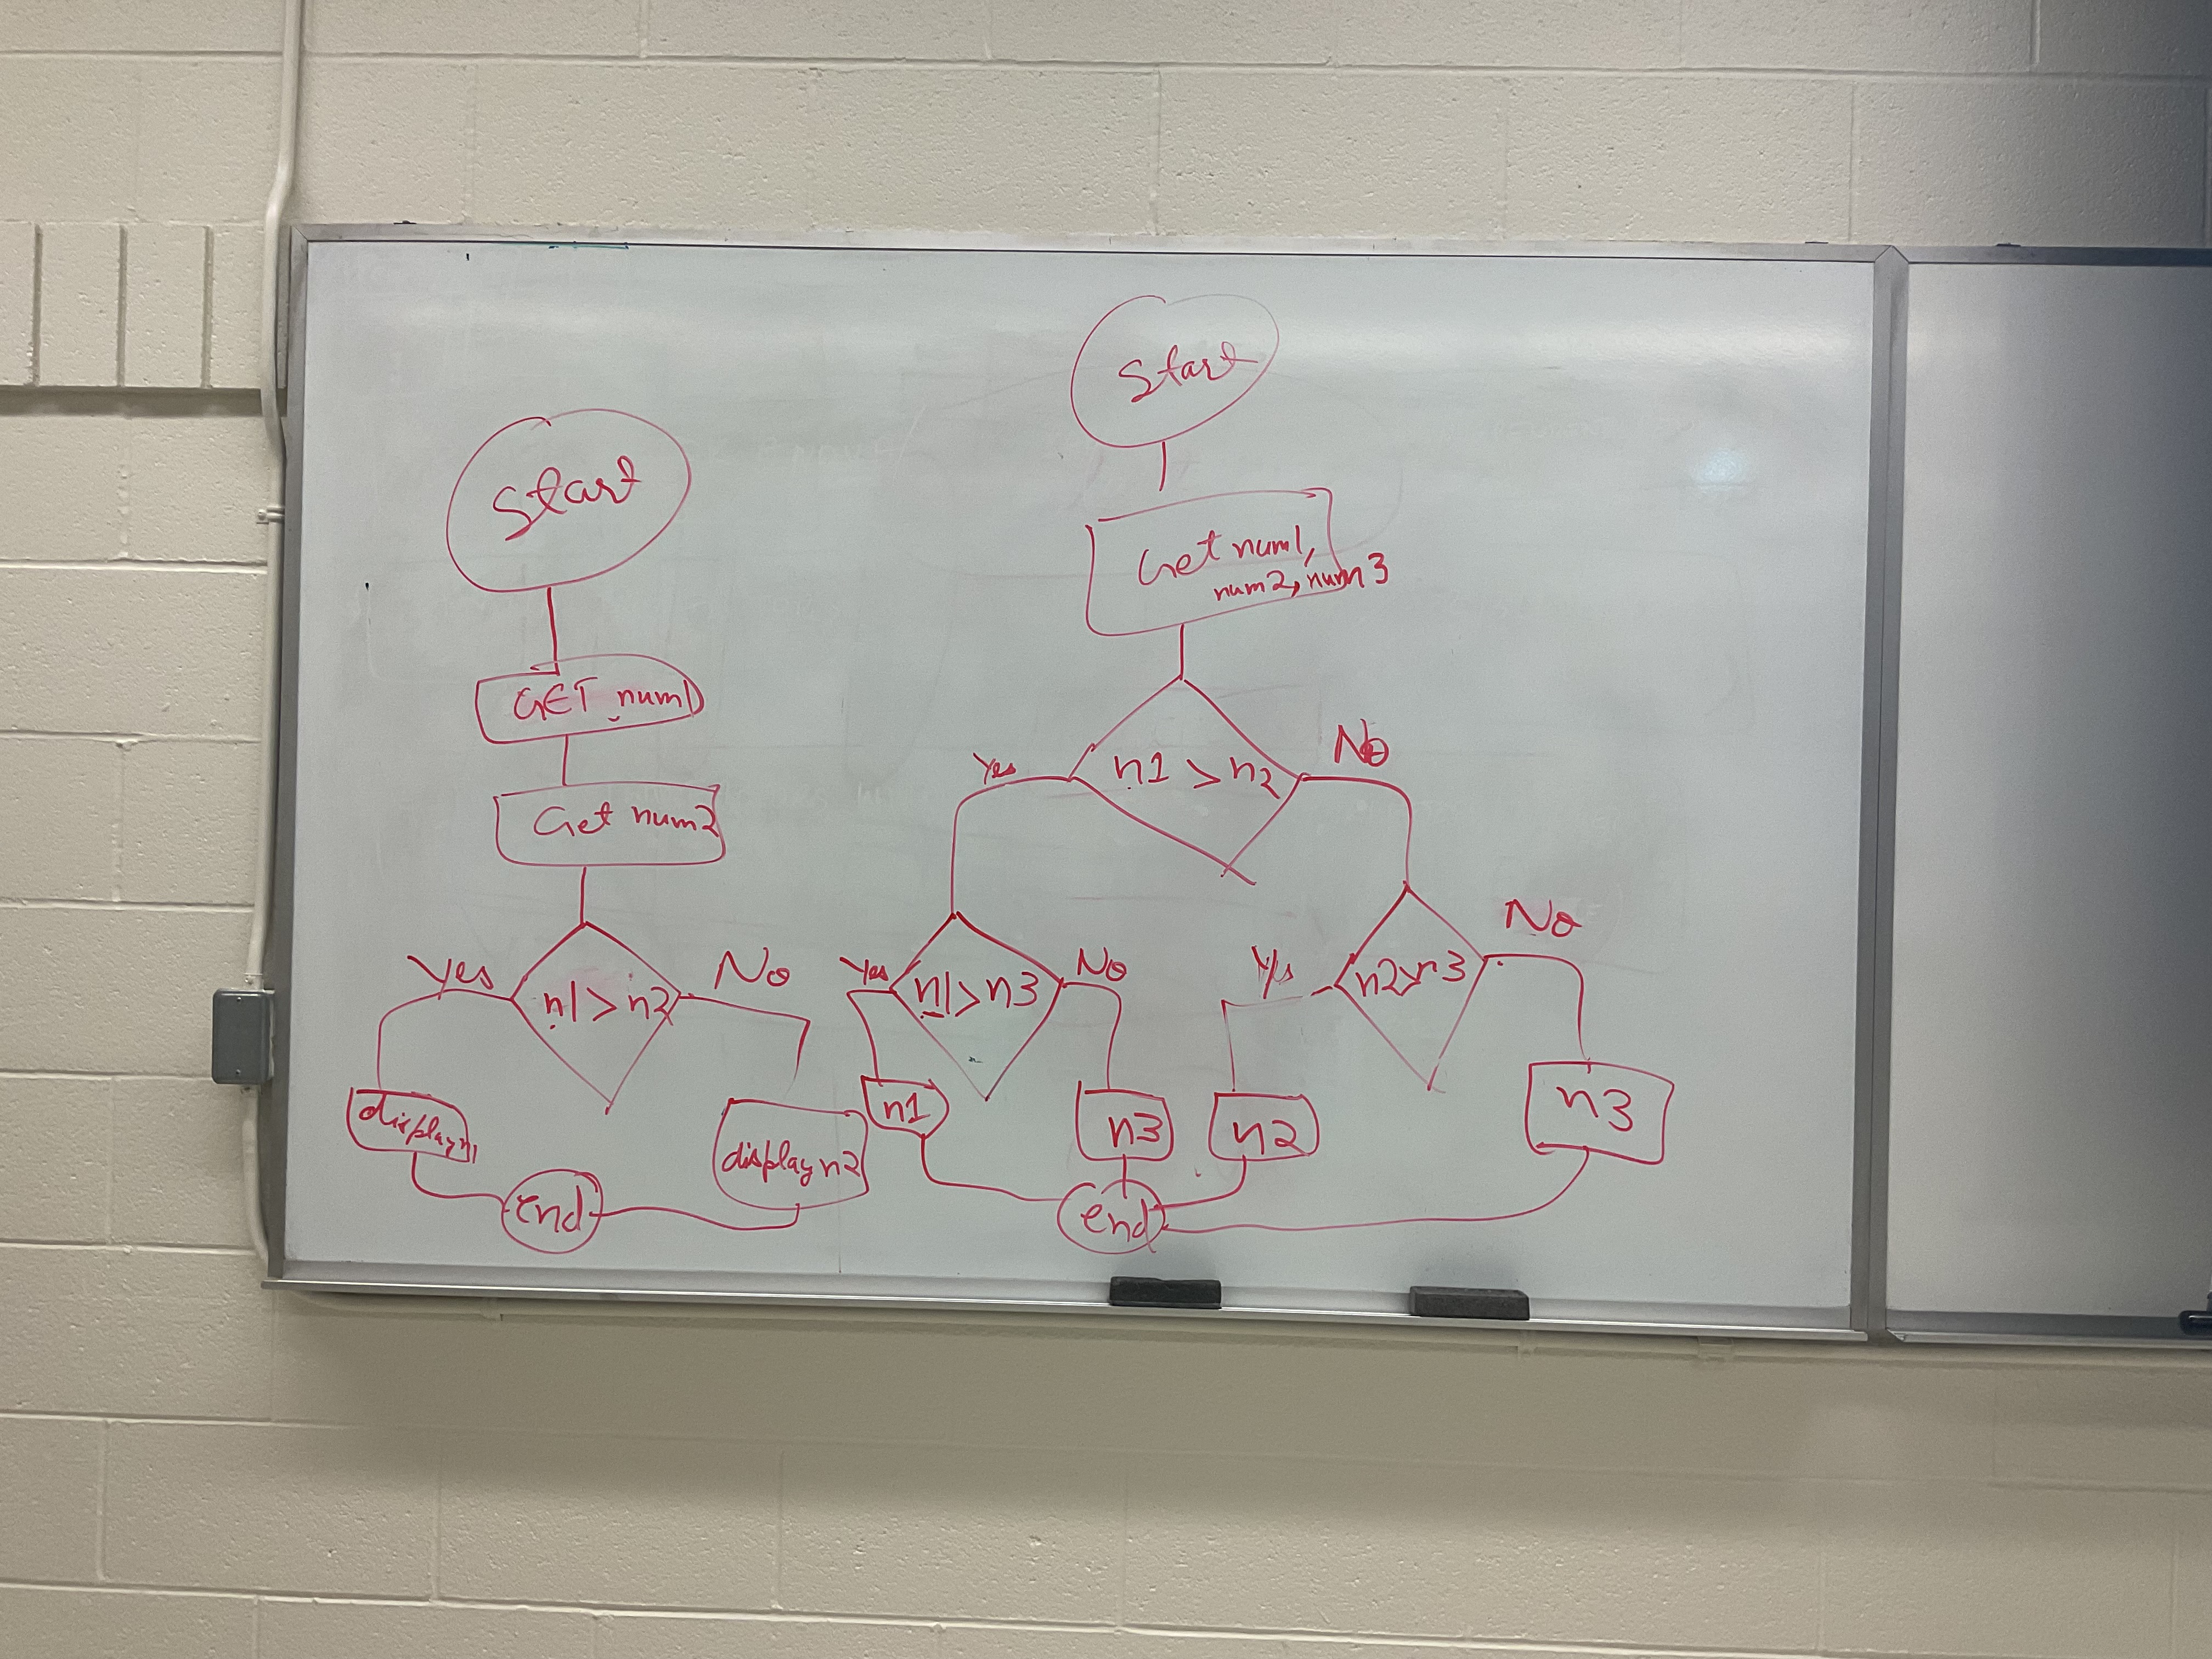 Start
GET num1
Get num2
n1 > n2
Yes
No
display n1
display n2
end
Start
Get num1,
num2, num3
n1 > n2
Yes
No
n1 > n3
Yes
No
n2 > n3
Yes
No
n1
n3
n2
n3
end